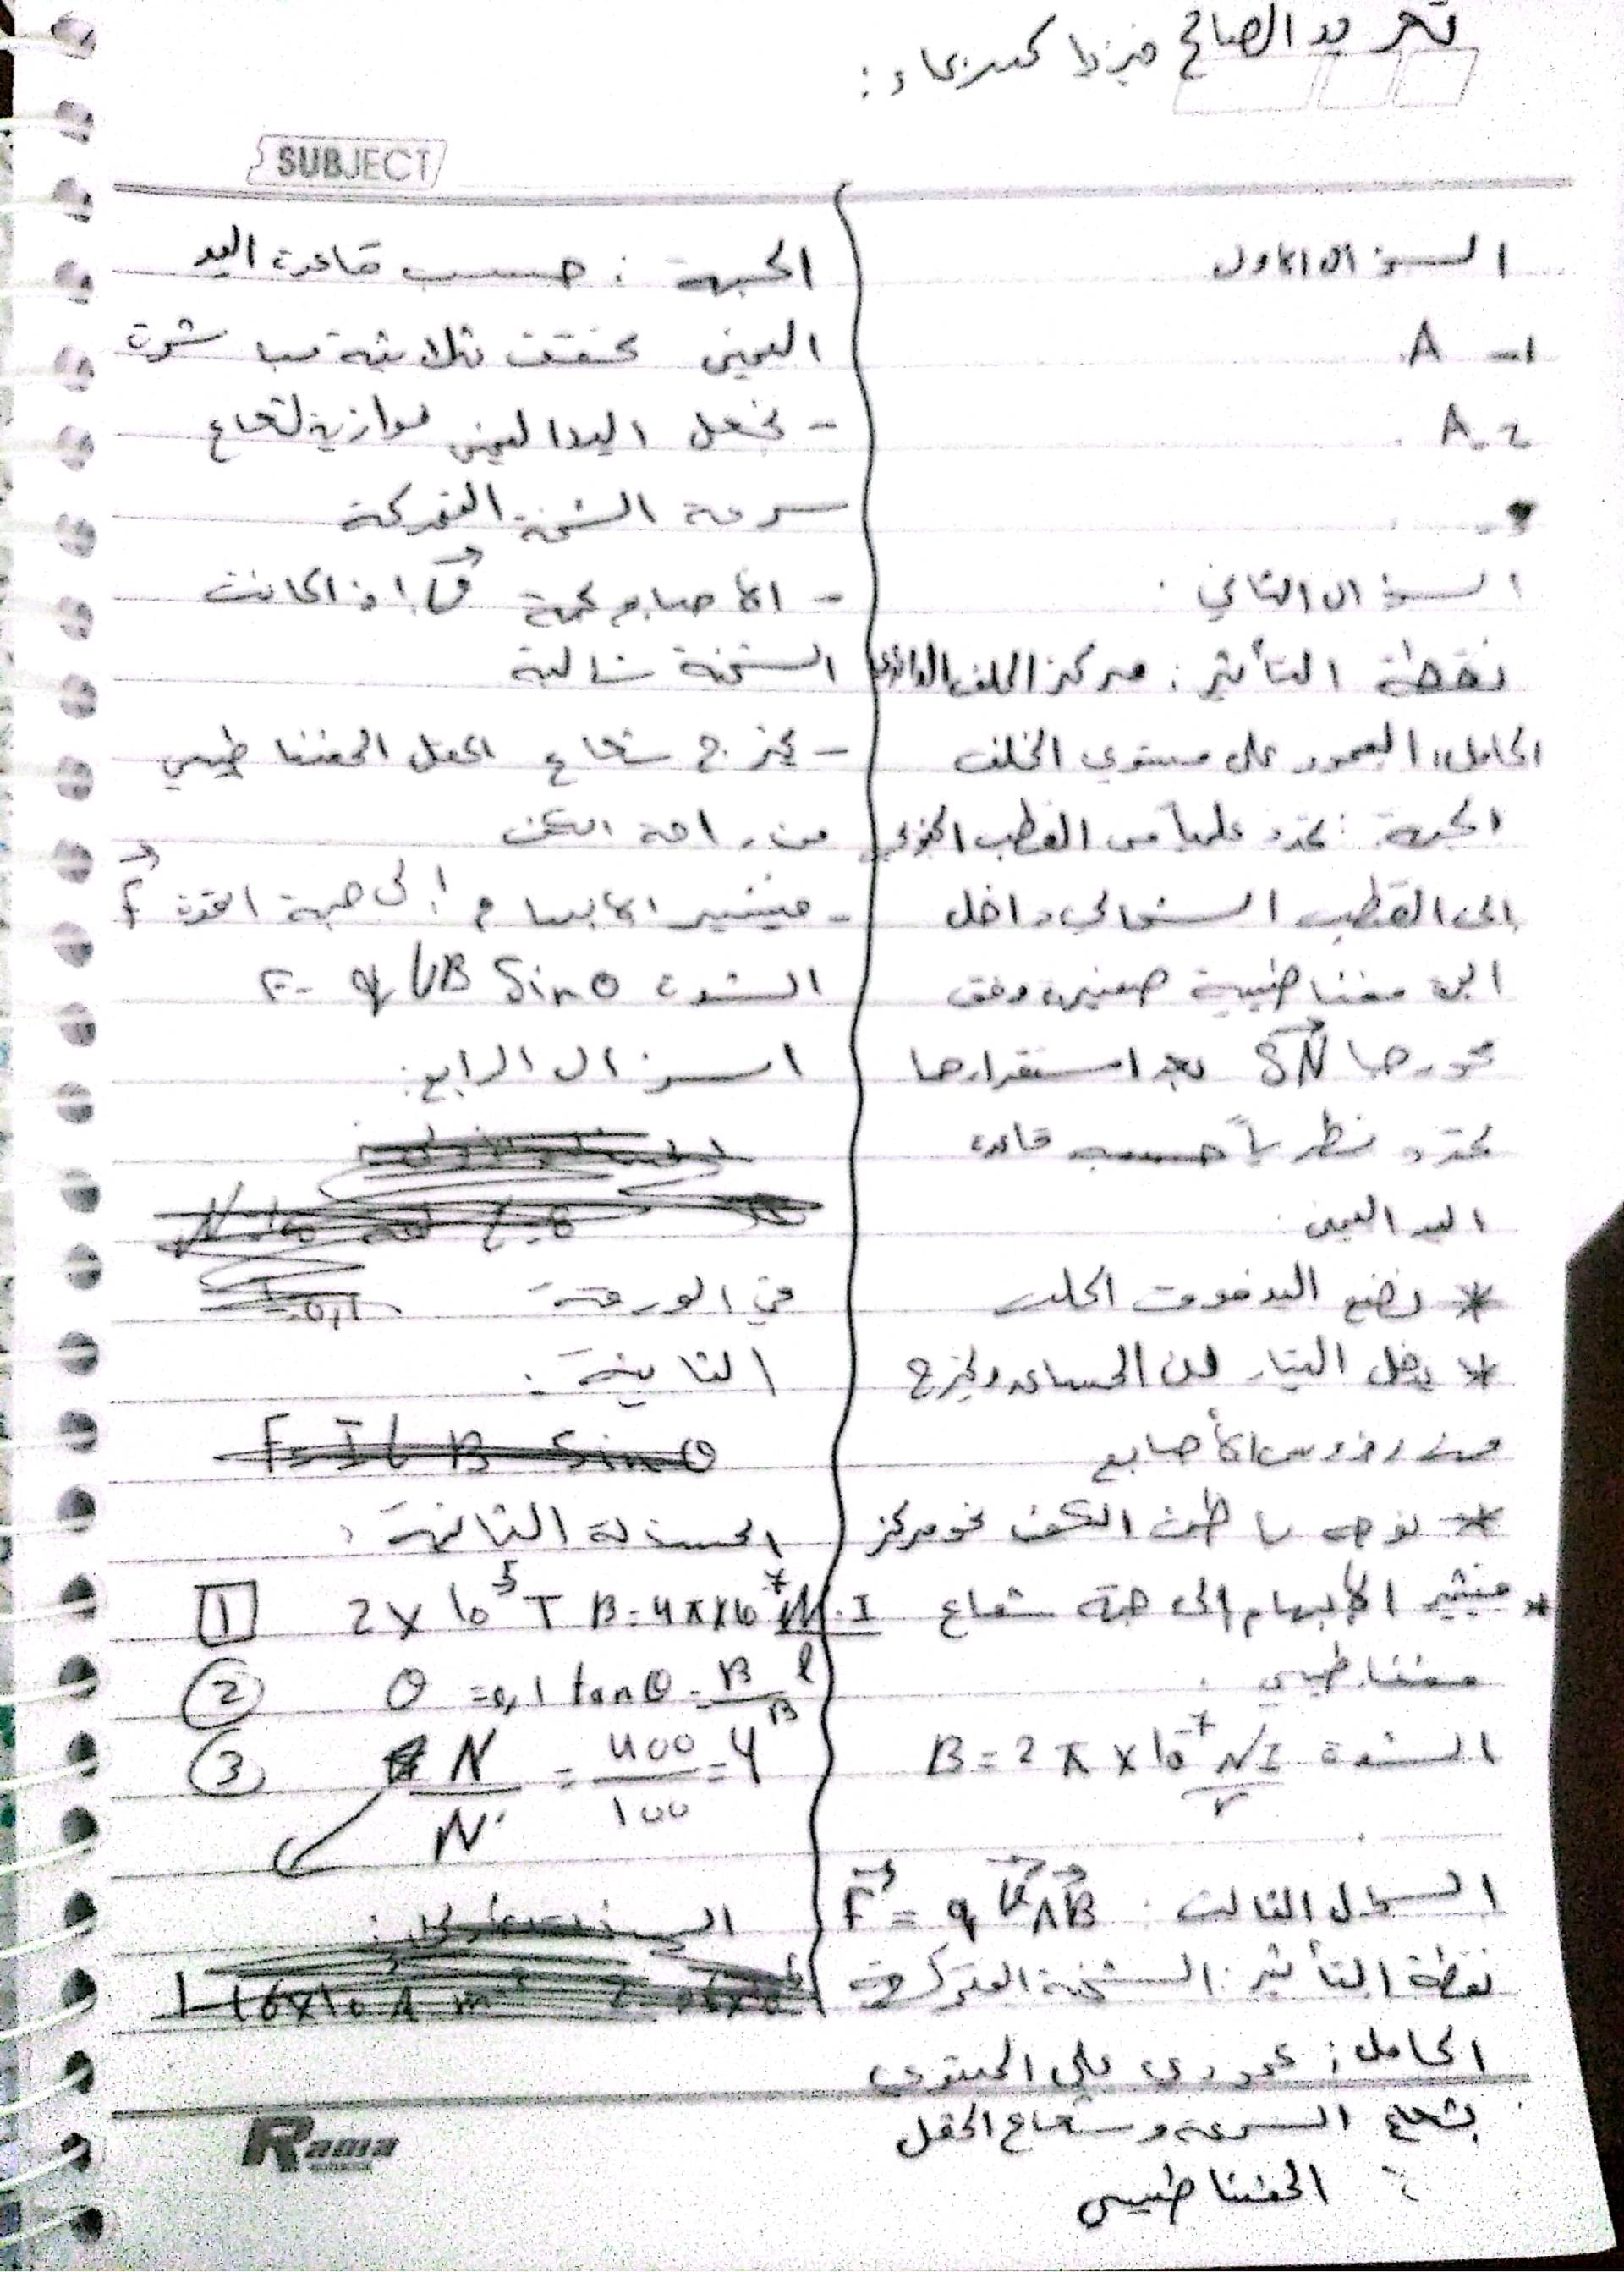 تغريد الصالح فيزيا كهرباء :
SUBJECT
السؤال الاول
1- A
2- A
السؤال الثاني :
نقطة التأثير : مركز الملف الدائري
الحامل : العمود على مستوي الملف
الجهة : تحدد عملياً من القطب الجنوبي
الى القطب الشمالي داخل
ابرة مغناطيسية صغيرة وفق
محورها SN بعد استقرارها
تحدد نظرياً حسب قاعدة
اليد اليمنى
* نضع اليد فوق الملف
* يدخل التيار من الساعد ويخرج
من رؤوس الأصابع
* نوجه باطن الكف نحو مركز
* فيشير الأبهام الى جهة شعاع
مغناطيسي .
الشدة B = 2π × 10⁻⁷ NI/r
السؤال الثالث : F = q V ∧ B
نقطة التأثير : الشحنة المتحركة
الحامل : عمودي على المستوي
بشعاع السرعة وشعاع الحقل
المغناطيسي
الجهة : حسب قاعدة اليد
اليمنى تحقق ثلاثية مباشرة
- نجعل اليد اليمنى موازية لشعاع
سرعة الشحنة المتحركة
- الأصابع بجهة اذا كانت
الشحنة سالبة
- يخرج شعاع الحقل المغناطيسي
من راحة الكف
- فيشير الابهام إلى جهة القوة F
الشدة F = q VB Sin θ
السؤال الرابع :
في الورقة
الثانية .
F = I L B Sin θ
المسألة الثانية :
1 2 × 10⁵ T B = 4π × 10⁷ N.I / l
2 θ = 0,1 tan θ = B / B
3 N / N' = 400 / 100 = 4
Rama